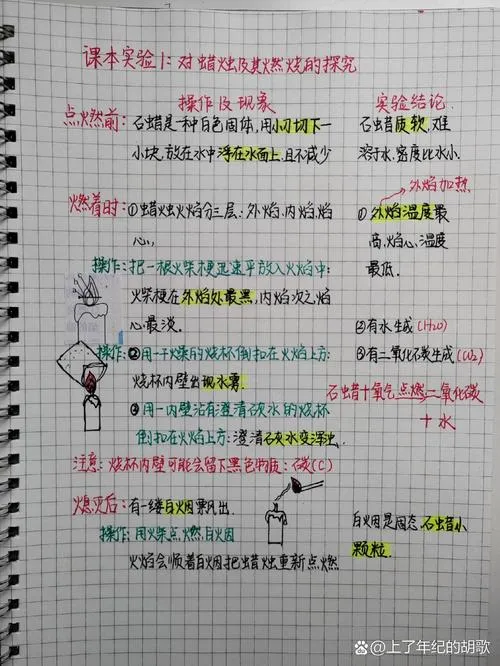 课本实验1:对蜡烛及其燃烧的探究
操作及现象 实验结论
点燃前: 石蜡是一种白色固体,用小刀切下一 石蜡质软,难
小块,放在水中浮在水面上,且不减少 溶于水,密度比水小.
外焰加热
燃着时: ①蜡烛火焰分三层:外焰,内焰,焰 ①外焰温度最
心, 高,焰心,温度
操作: 把一根火柴梗迅速平放入火焰中: 最低.
火柴梗在外焰处最黑,内焰次之焰
心最淡. ②有水生成(H2O)
操作: ②用一干燥的烧杯倒扣在火焰上方: ③有二氧化碳生成(CO2)
烧杯内壁出现水雾. 石蜡+氧气点燃→二氧化碳
③用一内壁沾有澄清石灰水的烧杯 +水
倒扣在火焰上方:澄清石灰水变浑浊.
注意: 烧杯内壁可能会留下黑色物质:石碳(C)
熄灭后: 有一缕白烟飘出. 白烟是固态石蜡小
操作: 用火柴点燃白烟 颗粒.
火焰会顺着白烟把蜡烛重新点燃
@上了年纪的胡歌